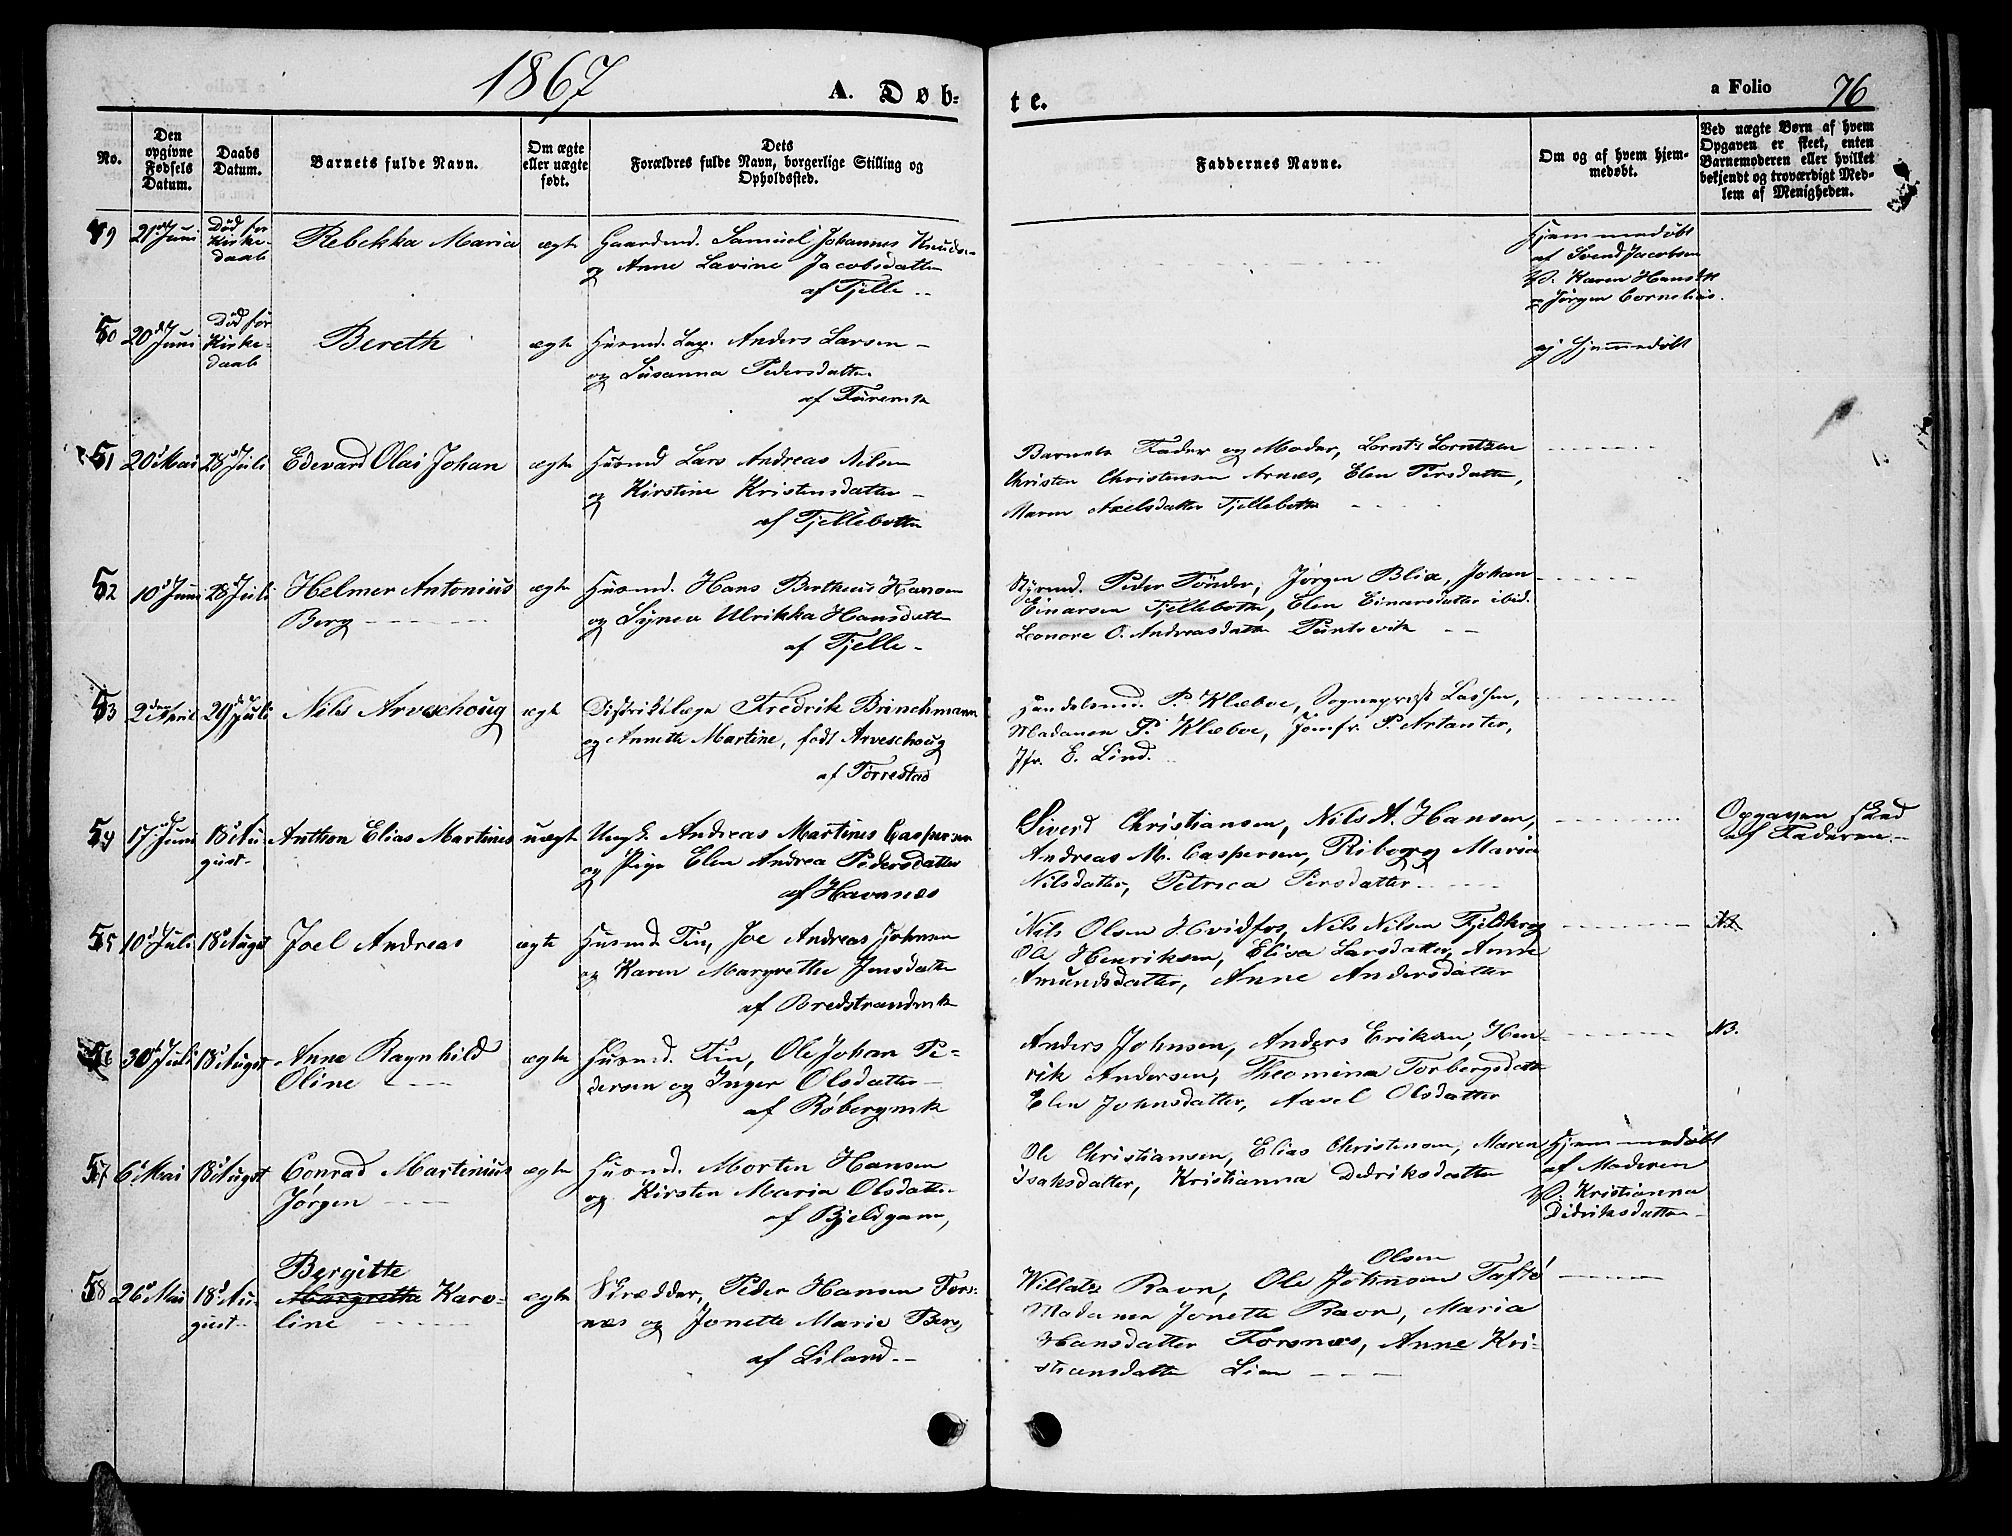 1867
A. Døb-
te.
a Folio
76
No.
Den opgivne Fødsels Datum.
Daabs Datum.
Barnets fulde Navn.
Om ægte eller uægte født.
Dets Forældres fulde Navn, borgerlige Stilling og Opholdssted.
Faddernes Navne.
Om og af hvem hjemmedøbt.
Ved uægte Børn af hvem Opgaven er skeet, enten Barnemoderen eller hvilket bekjendt og troværdigt Medlem af Menigheden.
49 21 Juni Død før Kirke-daab Rebekka Maria ægte Gaardmd. Samuel Johannes Knudsen
og Anne Lavine Jacobsdatter
af Fjelle
Hjemmedøbt
af Svend Jacobsen
V. Karen Hansdtr
og Jørgen Cornelius.
50 20 Juni Død før Kirke-daab Bereth ægte Husmd. Anders Larsen
og Susanna Pedersdatter
ej Hjemmedøbt
51 20 Mai 28 Juli Edevard Olai Johan ægte Husmd Lars Andreas Nilsen
og Kirstine Kristensdatter
af Fjellebotten
Barnets Fader og Moder, Lornts Lorntsen
Christen Christensen Arnæs, Elen Persdatter,
Maren Axelsdatter Fjellebotten
52 10 Juni 28 Juli Helmer Antonius
Berg
ægte Husmd. Hans Bertheus Hansen
og Synea Ulrikka Hansdatter
af Fjelle
Styrmd. Peder Tønder, Jørgen Blix, Johan
Einarsen Fjellebotten, Elen Einarsdatter ibid.
Leonore O. Andreasdatter
53 2den April 29 Juli Nils Arveschoug ægte Distriktslæge Fredrik Brinchmann
og Annette Martine, født Arveschoug
af Forrestad
Handelsmd. P. Klæboe, Sognepræst Lassen,
Madamen P. Klæboe, Jomfr. P. Artanter,
Jfr. E. Lind.
54 17 Juni 18 Au-
gust
Anthon Elias Martines uægte Ungk. Andreas Martines Caspersen
og Pige Elen Andrea Pedersdatter
af Havnnæs
Siverd Christiansen, Nils N. Hansen,
Andreas M. Caspersen, Riborg Maria
Nilsdatter, Petrica Persdatter
Opgaven skeed
af Faderen
55 10 Juli 18 August Joel Andreas ægte Husmd. Fin, Joe Andreas Johnsen
og Karen Margrethe Jensdatter
af Bredstrandmk
Nils Olsen Hvidfos, Nils Nilsen Fjeldkrog
Ole Henriksen, Elisa Larsdatter, Anne
Amundsdatter, Anne Andersdatter
56 30 Juli 18 August Anne Ragnhild
Oline
ægte Husmd. Fin, Ole Johan Pe-
dersen og Inger Olsdatter
af Røbergmk
Anders Johnsen, Anders Eriksen, Hen-
rik Andersen, Theomina Torbergsdatter
Elen Johnsdatter, Aavel Olsdatter
NB.
57 6 Mai 18 August Conrad Martinius
Jørgen
ægte Husmd. Morten Hansen
og Kirsten Maria Olsdatter
af Bjeldgam,
Ole Christiansen, Elias Christensen, Maren
Isaksdatter, Kristianna Didriksdatter
Hjemmedøbt
af Moderen
V. Kristianna
Didriksdatter
58 26 Mai 18 Au-
gust
Bergitte
Margrethe Karo-
line
ægte Skrædder, Peder Hansen Fors-
næs og Jonette Marie Berg
af Liland
Olsen
Willats Ravn, Ole Johnsen Taftø
Madamen Jonette Ravn, Maria
Hansdatter Forsnæs, Anne Kri-
stiansdatter Lien